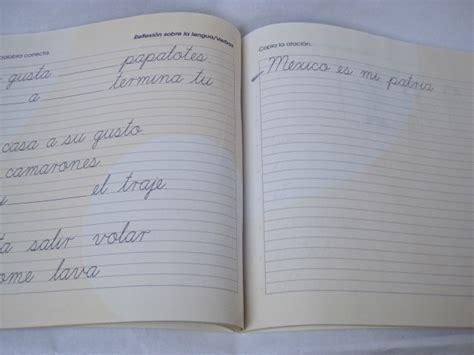 palabra correcta.
Reflexión sobre la lengua/Verbos
gusta papalotes
a termina tu
casa a su gusto.
camarones.
el traje.
salir volar
lava
Copia la oración.
Mexico es mi patria